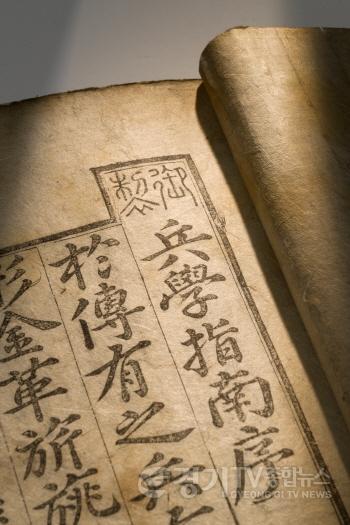 御製
兵學指南序
於傳有之兵
金革旂旐
경기TV종합뉴스
GYEONG GI TV NEWS